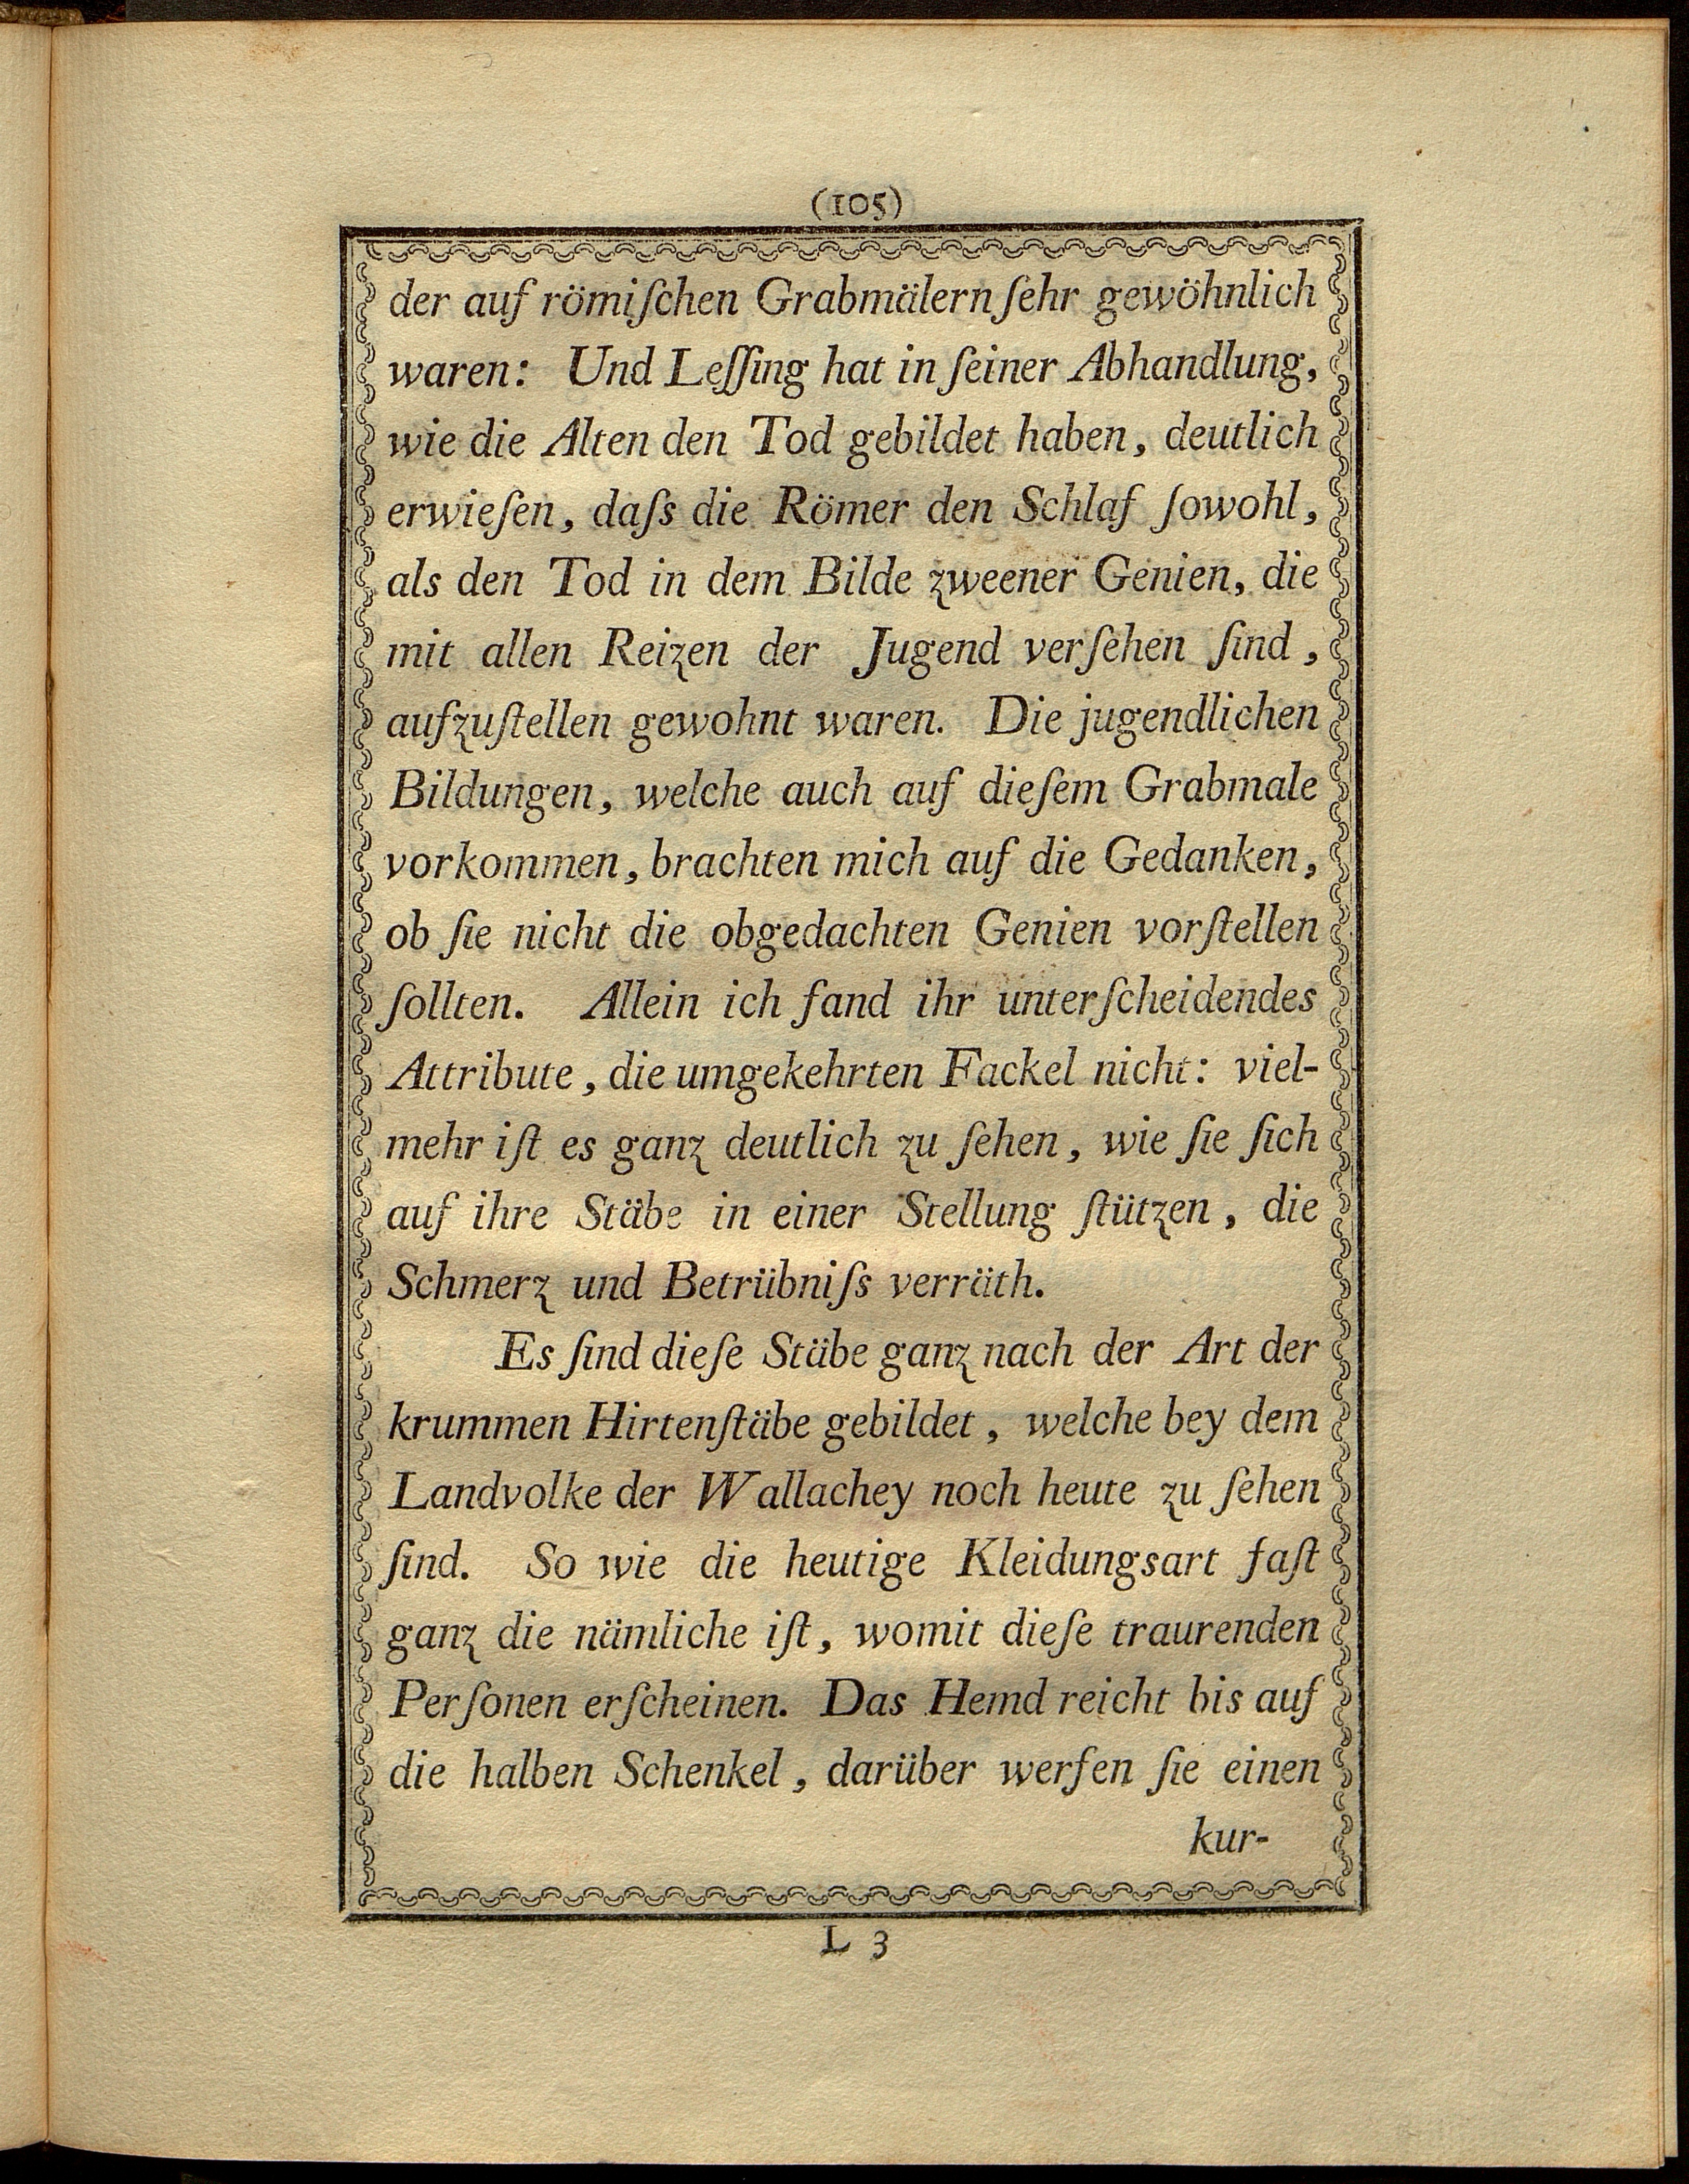 (105)
der auf römiſchen Grabmälern ſehr gewöhnlich
waren: Und Leſſing hat in ſeiner Abhandlung,
wie die Alten den Tod gebildet haben, deutlich
erwieſen, daſs die Römer den Schlaf ſowohl,
als den Tod in dem Bilde zweener Genien, die
mit allen Reizen der Jugend verſehen ſind,
aufzuſtellen gewohnt waren. Die jugendlichen
Bildungen, welche auch auf dieſem Grabmale
vorkommen, brachten mich auf die Gedanken,
ob ſie nicht die obgedachten Genien vorſtellen
ſollten. Allein ich fand ihr unterſcheidendes
Attribute, die umgekehrten Fackel nicht: viel-
mehr iſt es ganz deutlich zu ſehen, wie ſie ſich
auf ihre Stäbe in einer Stellung ſtützen, die
Schmerz und Betrübniſs verräth.
Es ſind dieſe Stäbe ganz nach der Art der
krummen Hirtenſtäbe gebildet, welche bey dem
Landvolke der Wallachey noch heute zu ſehen
ſind. So wie die heutige Kleidungsart faſt
ganz die nämliche iſt, womit dieſe traurenden
Perſonen erſcheinen. Das Hemd reicht bis auf
die halben Schenkel, darüber werfen ſie einen
kur-
L 3